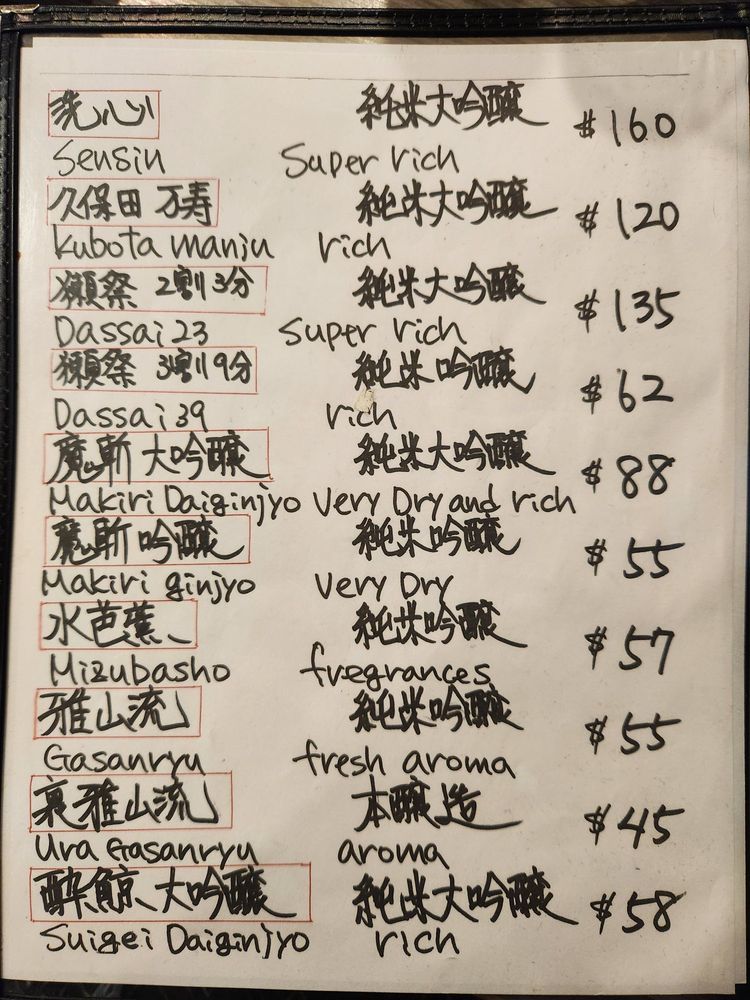 洗心 純米大吟醸 $160
Sensin Super rich
久保田 万寿 純米大吟醸 $120
Kubota manju rich
獺祭 2割3分 純米大吟醸 $135
Dassai 23 Super rich
獺祭 3割9分 純米吟醸 $62
Dassai 39 rich
魔斬 大吟醸 純米大吟醸 $88
Makiri Daiginjyo Very Dry and rich
魔斬 吟醸 純米吟醸 $55
Makiri ginjyo Very Dry
水芭蕉 純米吟醸 $57
Mizubasho fregrances
雅山流 純米吟醸 $55
Gasanryu fresh aroma
裏雅山流 本醸造 $45
Ura Gasanryu aroma
酔鯨 大吟醸 純米大吟醸 $58
Suigei Daiginjyo rich